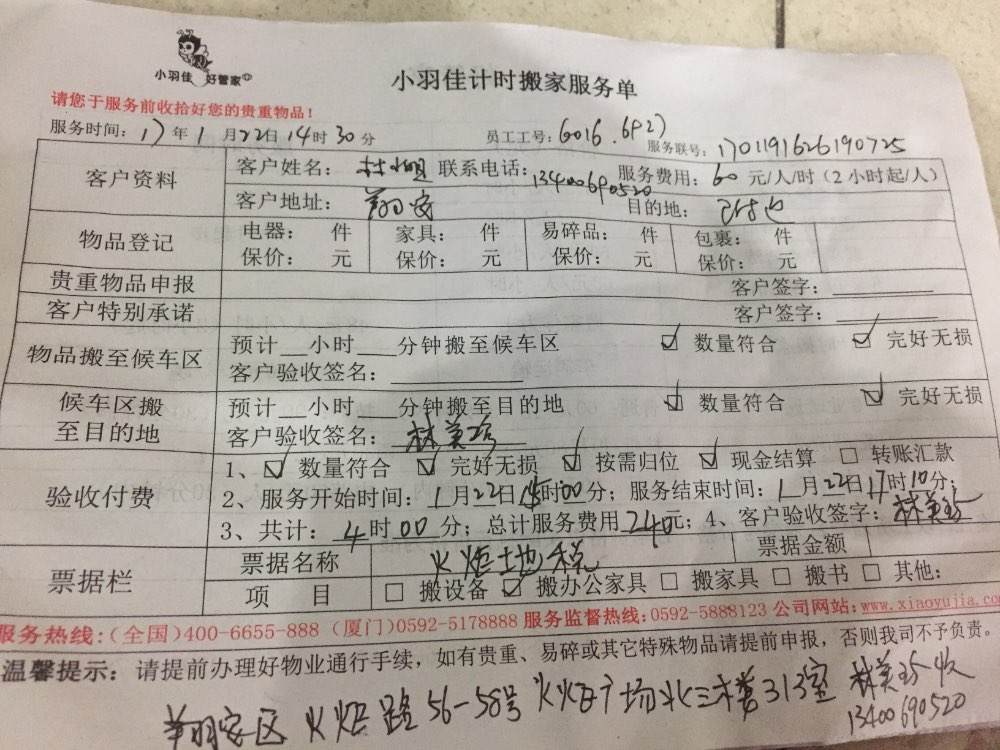 小羽佳 好管家
小羽佳计时搬家服务单
请您于服务前收拾好您的贵重物品!
服务时间: 17年1月22日14时30分 员工工号: 6016.6927 服务联号: 1701191626190725
客户资料 客户姓名: 林小姐 联系电话: 13400690520 服务费用: 60元/人/时(2小时起/人)
客户地址: 翔安 目的地:
物品登记 电器: 件 家具: 件 易碎品: 件 包裹: 件
保价: 元 保价: 元 保价: 元 保价: 元
贵重物品申报 客户签字:
客户特别承诺 客户签字:
物品搬至候车区 预计__小时___分钟搬至候车区 ☑ 数量符合 ☑ 完好无损
客户验收签名:
候车区搬至目的地 预计__小时___分钟搬至目的地 ☑ 数量符合 ☑ 完好无损
客户验收签名: 林美巧
验收付费 1、☑ 数量符合 ☑ 完好无损 ☑ 按需归位 ☑ 现金结算 □ 转账汇款
2、服务开始时间: 1月22日15时00分; 服务结束时间: 1月22日17时10分;
3、共计: 4时00分; 总计服务费用240元; 4、客户验收签字: 林美巧
票据栏 票据名称 火炬地税 票据金额
项 目 □ 搬设备 ☑ 搬办公家具 □ 搬家具 □ 搬书 □ 其他:
服务热线:(全国)400-6655-888 (厦门)0592-5178888 服务监督热线:0592-5888123 公司网站: www.xiaoyujia.com
温馨提示: 请提前办理好物业通行手续,如有贵重、易碎或其它特殊物品请提前申报,否则我司不予负责。
翔安区火炬路56-58号火炬广场北三楼313室 林美巧收
13400690520